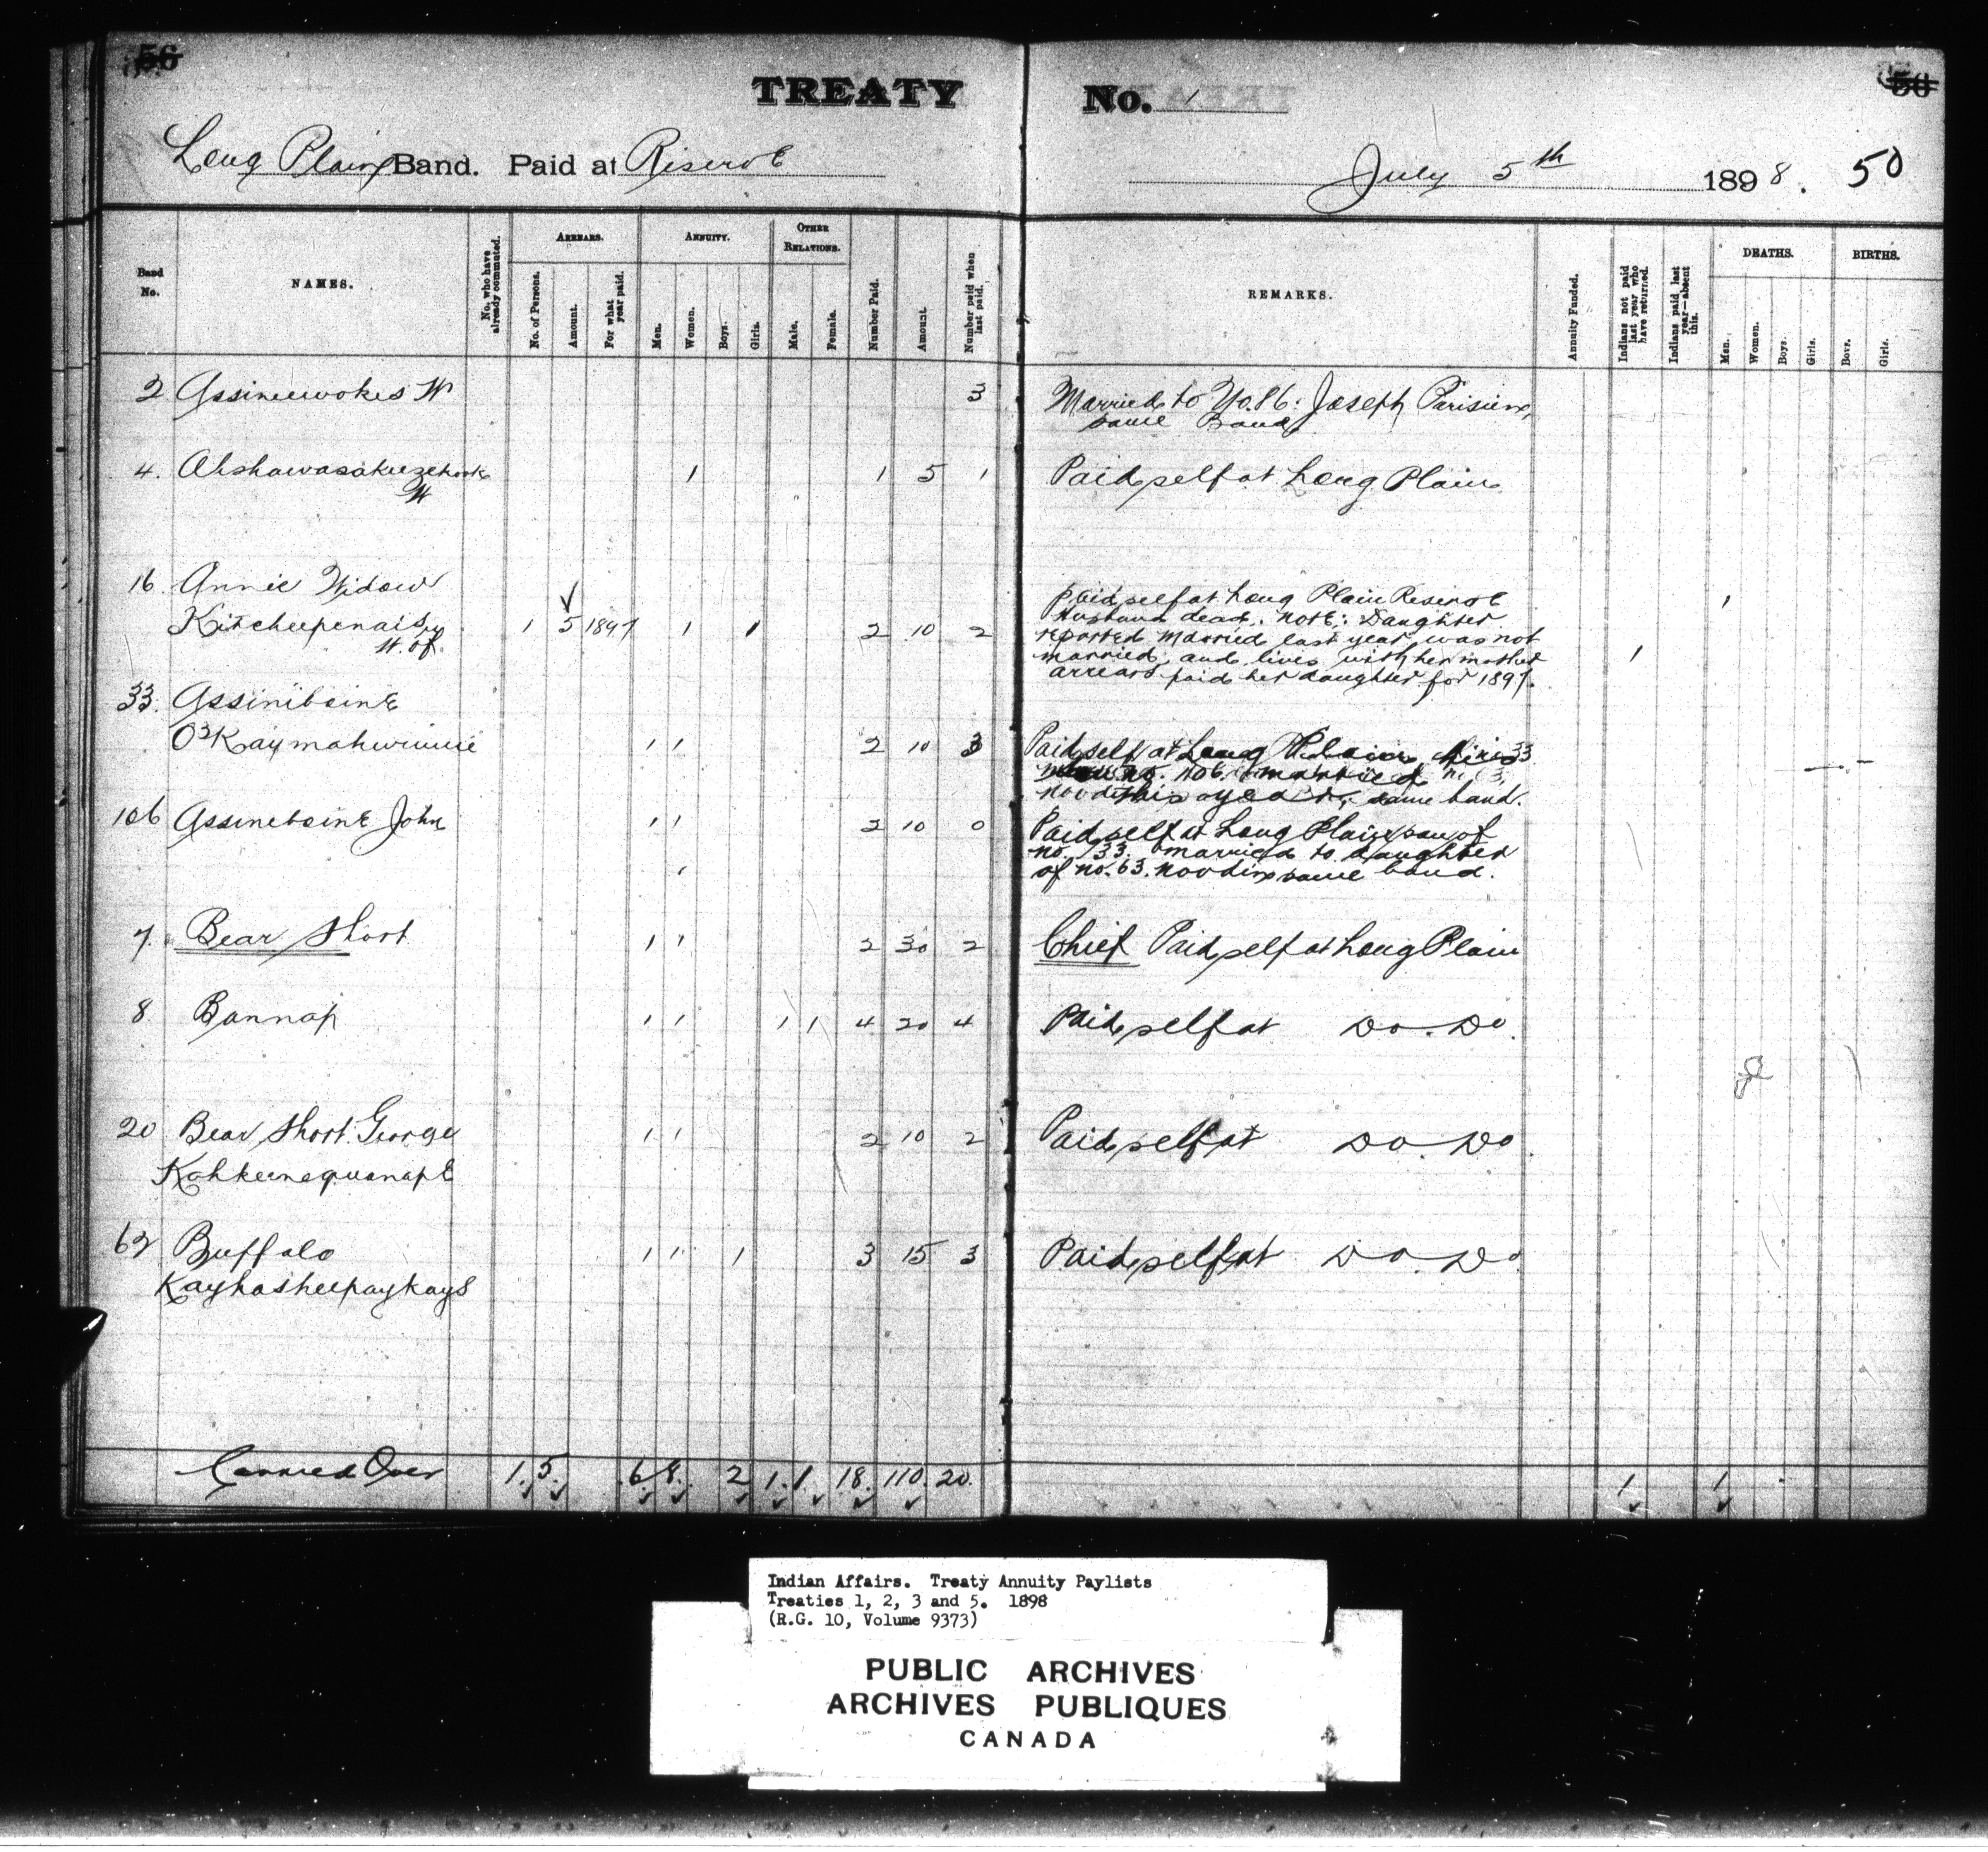 56
TREATY No. 1
56
Long Plain Band. Paid at Reserve
July 5th 1898. 50
Band No.
NAMES.
No. who have already commuted.
ARREARS.
No. of Persons.
Amount.
For what year paid.
ANNUITY.
Men.
Women.
Boys.
Girls.
OTHER RELATIONS.
Male.
Female.
Number Paid.
Amount.
Number paid when last paid.
REMARKS.
Annuity Funded.
Indians not paid last year who have returned.
Indians paid last year—absent this.
DEATHS.
Men.
Women.
Boys.
Girls.
BIRTHS.
Boys.
Girls.
2 Assineewokes W 3 Married to No. 86. Joseph Parisien,
same Band
4. 1 1 5 1 Paid self at Long Plain
W
16 Annie Widow Paid self at Long Plain Reserve 1
Kitcheepenaisy 1 5 1897 1 1 2 10 2 Husband dead. Note: Daughter
W. of. reported married last year was not
married, and lives with her mother 1
arrears paid her daughter for 1897.
33. Assiniboine
1 1 2 10 3 Paid self at Long Plain
this year same band.
106 Assineboine John 1 1 2 10 0 Paid self at Long Plain son of
no. 33. married to daughter
of no. 63. Noodin same band.
7. Bear Short 1 1 2 30 2 Chief Paid self at Long Plain
8 Bannap 1 1 1 1 4 20 4 Paid self at Do. Do.
20 Bear Short George 1 1 2 10 2 Paid self at Do. Do.
Kohkeenequanape
62 Buffalo 1 1 1 3 15 3 Paid self at Do. Do.
Kayhasheepaykays
Carried Over 1. 5. 6 8. 2 1. 1. 18. 110. 20. 1 1
Indian Affairs. Treaty Annuity Paylists
Treaties 1, 2, 3 and 5. 1898
(R.G. 10, Volume 9373)
PUBLIC ARCHIVES
ARCHIVES PUBLIQUES
CANADA